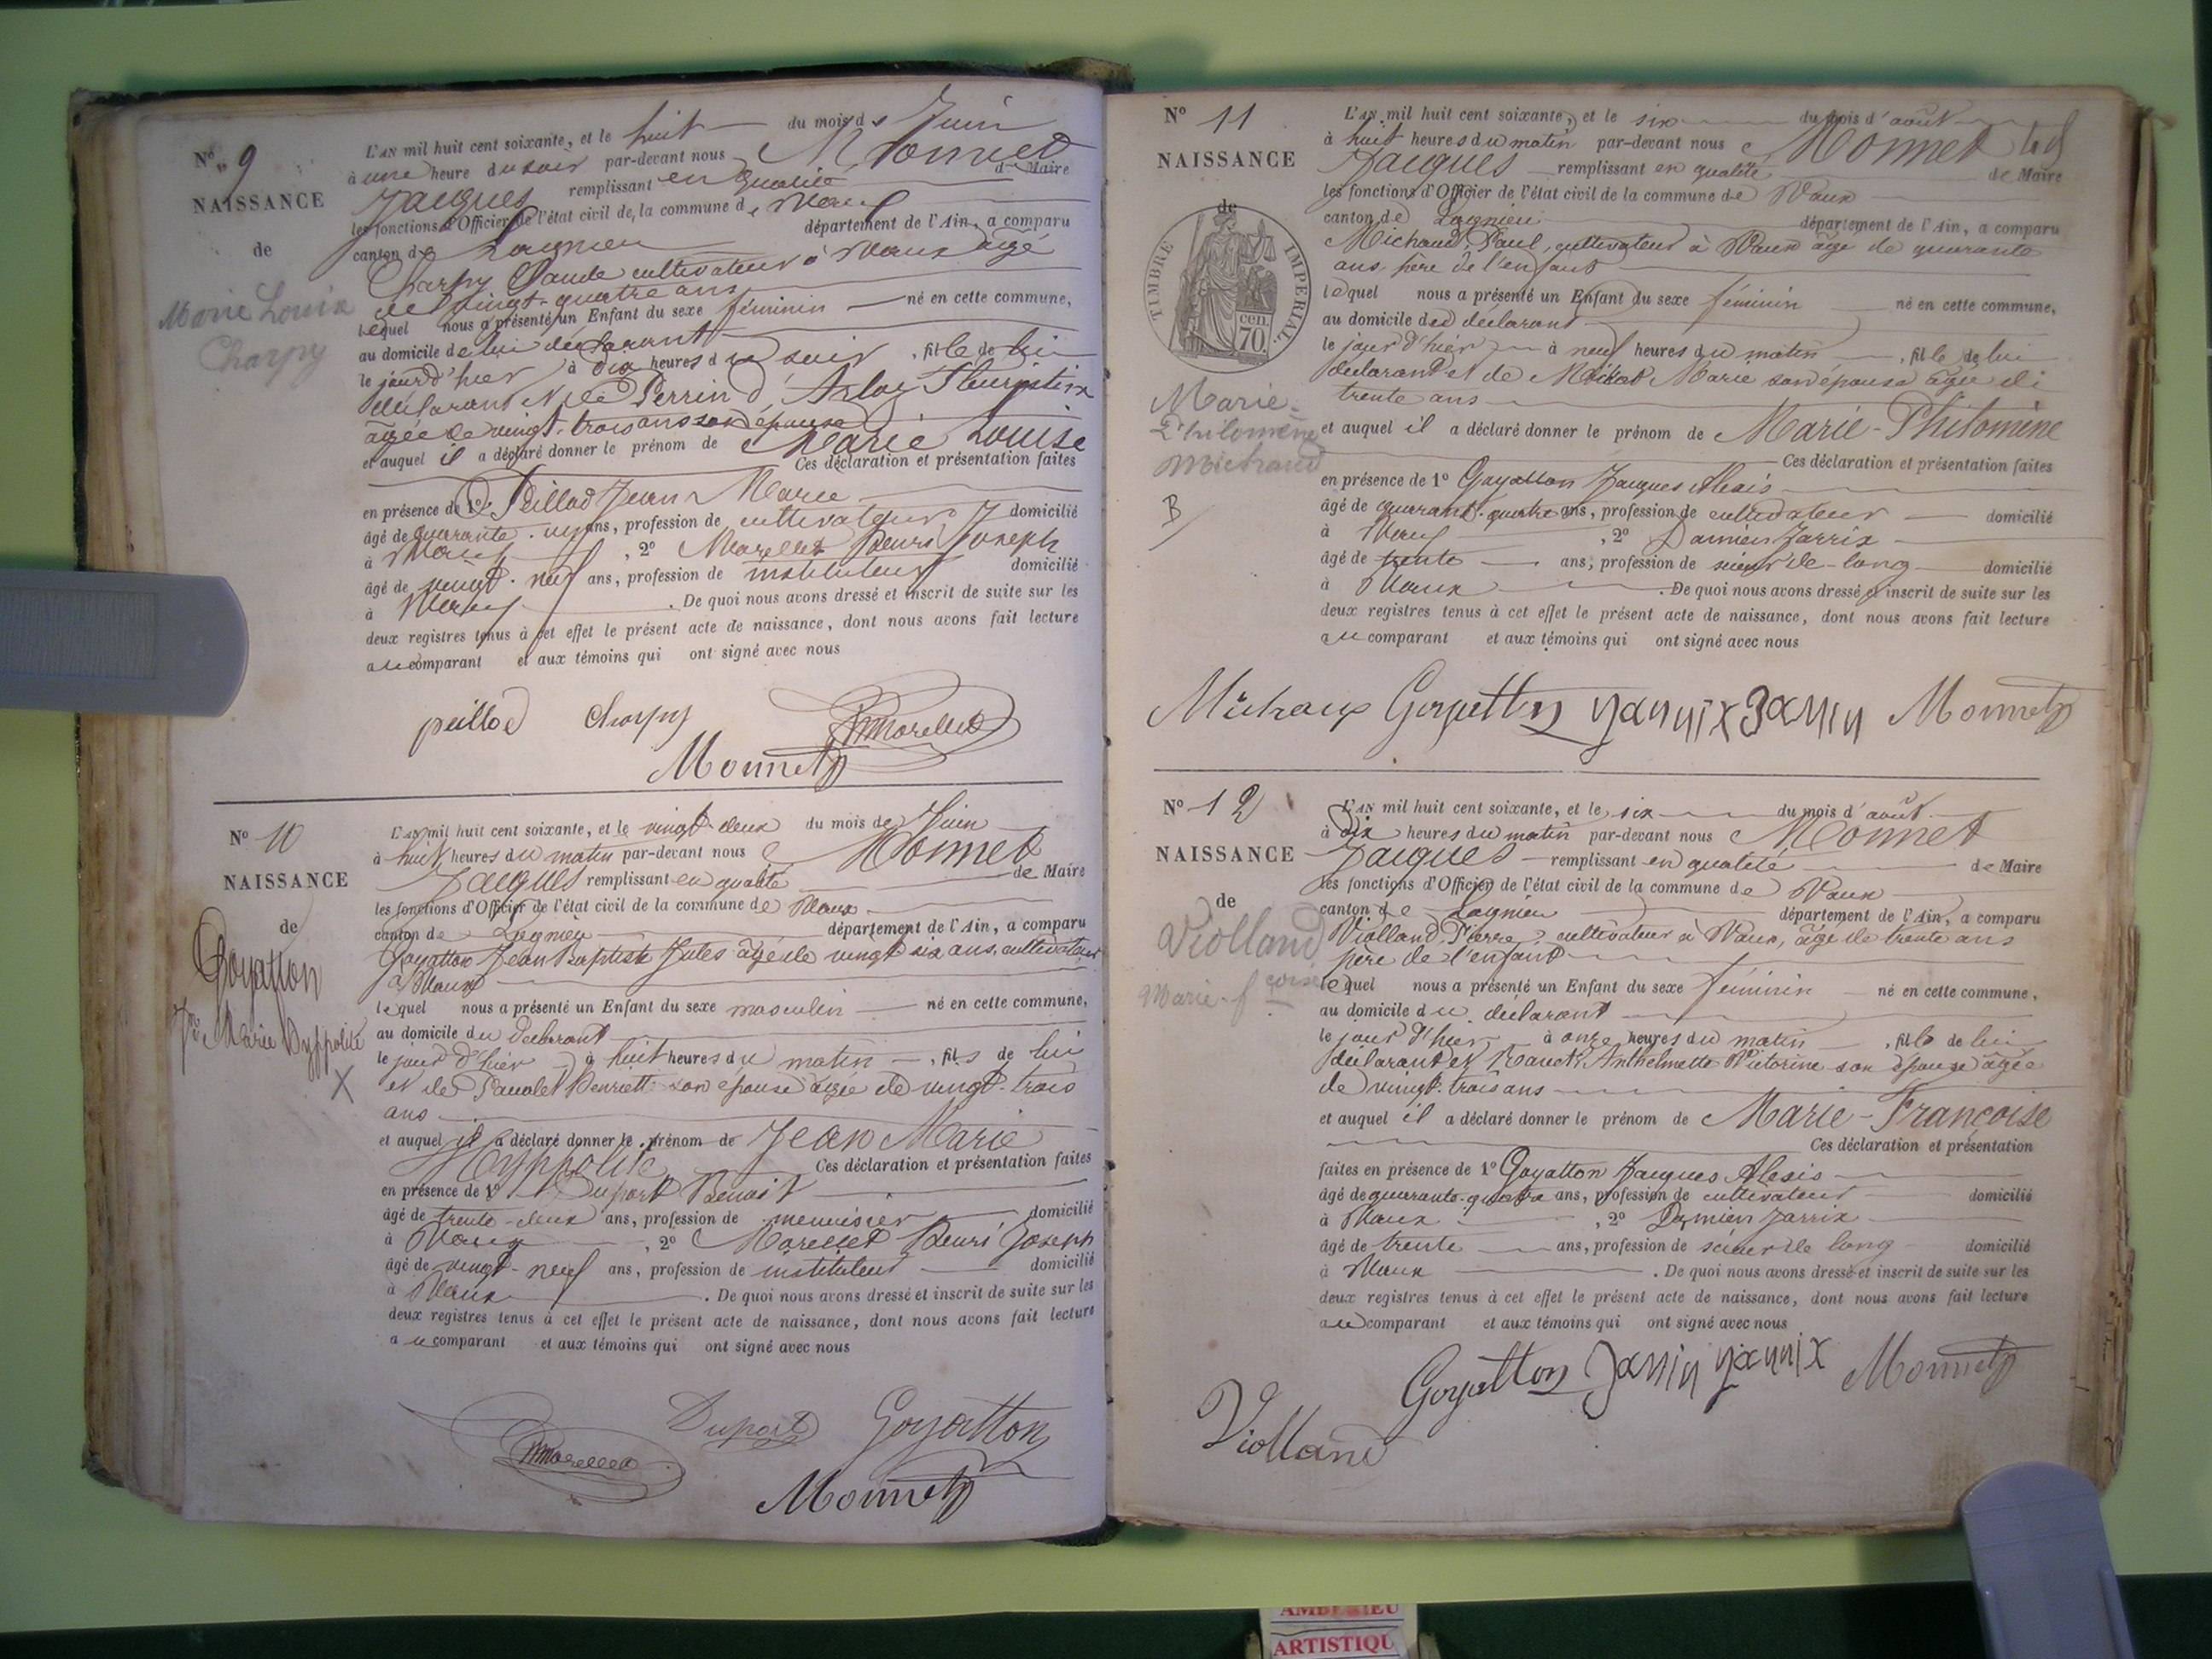 N° 9
NAISSANCE
de
Marie Louise
Charpy
L'AN mil huit cent soixante, et le huit du mois de Juin
à une heure du soir par-devant nous Monnet
Jacques remplissant en qualité de Maire
les fonctions d'Officier de l'état civil de la commune de Vaux
canton de Lagnieu département de l'Ain, a comparu
Charpy Claude cultivateur à Vaux âgé
de vingt-quatre ans
lequel nous a présenté un Enfant du sexe féminin né en cette commune,
au domicile de lui déclarant
le jour d'hier à dix heures du soir, fille de lui
déclarant et de Perrin d'Arloz
âgée de vingt-trois ans son épouse
et auquel il a déclaré donner le prénom de Marie Louise
Ces déclaration et présentation faites
en présence de 1° Peillod Jean Marie
âgé de quarante ans, profession de cultivateur domicilié
à Vaux, 2° Morellet Henri Joseph
âgé de vingt-neuf ans, profession de instituteur domicilié
à Vaux. De quoi nous avons dressé et inscrit de suite sur les
deux registres tenus à cet effet le présent acte de naissance, dont nous avons fait lecture
au comparant et aux témoins qui ont signé avec nous
peillod Charpy Morellet
Monnet
N° 10
NAISSANCE
de
Goyatton
Jn Marie Hyppolite
X
L'AN mil huit cent soixante, et le vingt-deux du mois de Juin
à huit heures du matin par-devant nous Monnet
Jacques remplissant en qualité de Maire
les fonctions d'Officier de l'état civil de la commune de Vaux
canton de Lagnieu département de l'Ain, a comparu
Goyatton Jean Baptiste Jules âgé de vingt six ans, cultivateur
à Vaux
lequel nous a présenté un Enfant du sexe masculin né en cette commune,
au domicile du déclarant
le jour d'hier à huit heures du matin, fils de lui
et de Henriette son épouse âgée de vingt-trois
ans
et auquel il a déclaré donner le prénom de Jean Marie
Hyppolite Ces déclaration et présentation faites
en présence de 1° Duport Benoit
âgé de trente-deux ans, profession de menuisier domicilié
à Vaux, 2° Morellet Henri Joseph
âgé de vingt-neuf ans, profession de instituteur domicilié
à Vaux. De quoi nous avons dressé et inscrit de suite sur les
deux registres tenus à cet effet le présent acte de naissance, dont nous avons fait lecture
au comparant et aux témoins qui ont signé avec nous
Morellet Duport Goyatton
Monnet
N° 11
NAISSANCE
de
TIMBRE IMPERIAL
cen. 70.
Marie-
Philomène
Michaud
B
L'AN mil huit cent soixante, et le six du mois d'août
à huit heures du matin par-devant nous Monnet
Jacques remplissant en qualité de Maire
les fonctions d'Officier de l'état civil de la commune de Vaux
canton de Lagnieu département de l'Ain, a comparu
Michaud, Paul, cultivateur à Vaux âgé de quarante
ans, père de l'enfant
lequel nous a présenté un Enfant du sexe féminin né en cette commune,
au domicile du déclarant
le jour d'hier à neuf heures du matin, fille de lui
déclarant et de Marie son épouse âgée de
trente ans
et auquel il a déclaré donner le prénom de Marie-Philomène
Ces déclaration et présentation faites
en présence de 1° Goyatton Jacques Alexis
âgé de quarante-quatre ans, profession de cultivateur domicilié
à Vaux, 2° Damien Jarrix
âgé de trente ans, profession de scieur de long domicilié
à Vaux. De quoi nous avons dressé et inscrit de suite sur les
deux registres tenus à cet effet le présent acte de naissance, dont nous avons fait lecture
au comparant et aux témoins qui ont signé avec nous
Michaux Goyatton Monnet
N° 12
NAISSANCE
de
Violland
Marie-fçoise
L'AN mil huit cent soixante, et le six du mois d'août
à dix heures du matin par-devant nous Monnet
Jacques remplissant en qualité de Maire
les fonctions d'Officier de l'état civil de la commune de Vaux
canton de Lagnieu département de l'Ain, a comparu
Violland, Pierre, cultivateur à Vaux, âgé de trente ans
père de l'enfant
lequel nous a présenté un Enfant du sexe féminin né en cette commune,
au domicile du déclarant
le jour d'hier à onze heures du matin, fille de lui
déclarant et Anthelmette Victorine son épouse âgée
de vingt-trois ans
et auquel il a déclaré donner le prénom de Marie-Françoise
Ces déclaration et présentation
faites en présence de 1° Goyatton Jacques Alexis
âgé de quarante-quatre ans, profession de cultivateur domicilié
à Vaux, 2° Damien Jarrix
âgé de trente ans, profession de scieur de long domicilié
à Vaux. De quoi nous avons dressé et inscrit de suite sur les
deux registres tenus à cet effet le présent acte de naissance, dont nous avons fait lecture
au comparant et aux témoins qui ont signé avec nous
Goyatton Monnet
Violland
AMBERIEU
ARTISTIQU